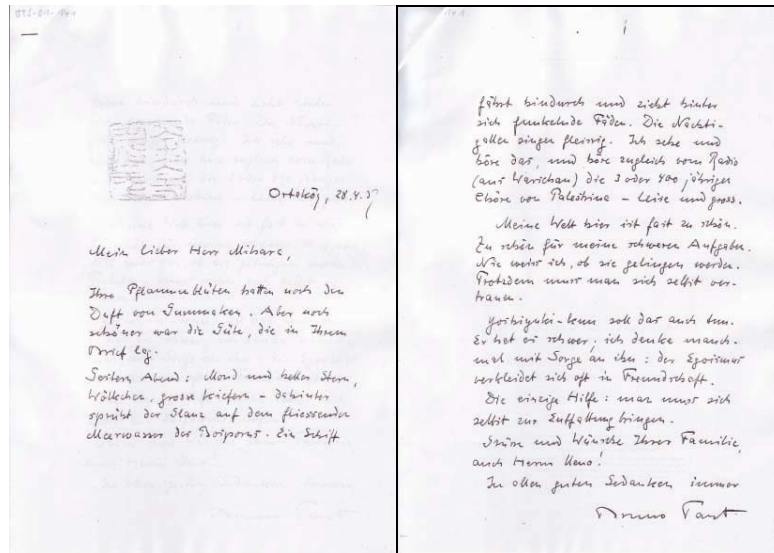 Ortaköy, 28.4.37
Mein lieber Herr Mihara,
Ihre Pflaumenblüten hatten noch den
Duft von Gunmaken. Aber noch
schöner war die Güte, die in Ihrem
Brief lag.
Gestern Abend: Mond und heller Stern,
Wölkchen, grosse Kiefern – dahinter
sprüht der Glanz auf dem fliessenden
Meerwasser des Bosporus. Ein Schiff
fährt hindurch und zieht hinter
sich funkelnde Fäden. Die Nachti-
gallen singen fleissig. Ich sehe und
höre das, und höre zugleich vom Radio
(aus Warschau) die 3 oder 400 jährigen
Chöre von Palestrina – leise und gross.
Meine Welt hier ist fast zu schön.
Zu schön für meine schweren Aufgaben.
Nie weiss ich, ob sie gelingen werden.
Trotzdem muss man sich selbst ver-
trauen.
Yoshiyuki-kun soll das auch tun.
Er hat es schwer, ich denke manch-
mal mit Sorge an ihn: der Egoismus
verkleidet sich oft in Freundschaft.
Die einzige Hilfe: man muss sich
selbst zur Entfaltung bringen.
Grüsse und Wünsche Ihrer Familie,
auch Herrn Ueno!
In allen guten Gedanken immer
Bruno Taut